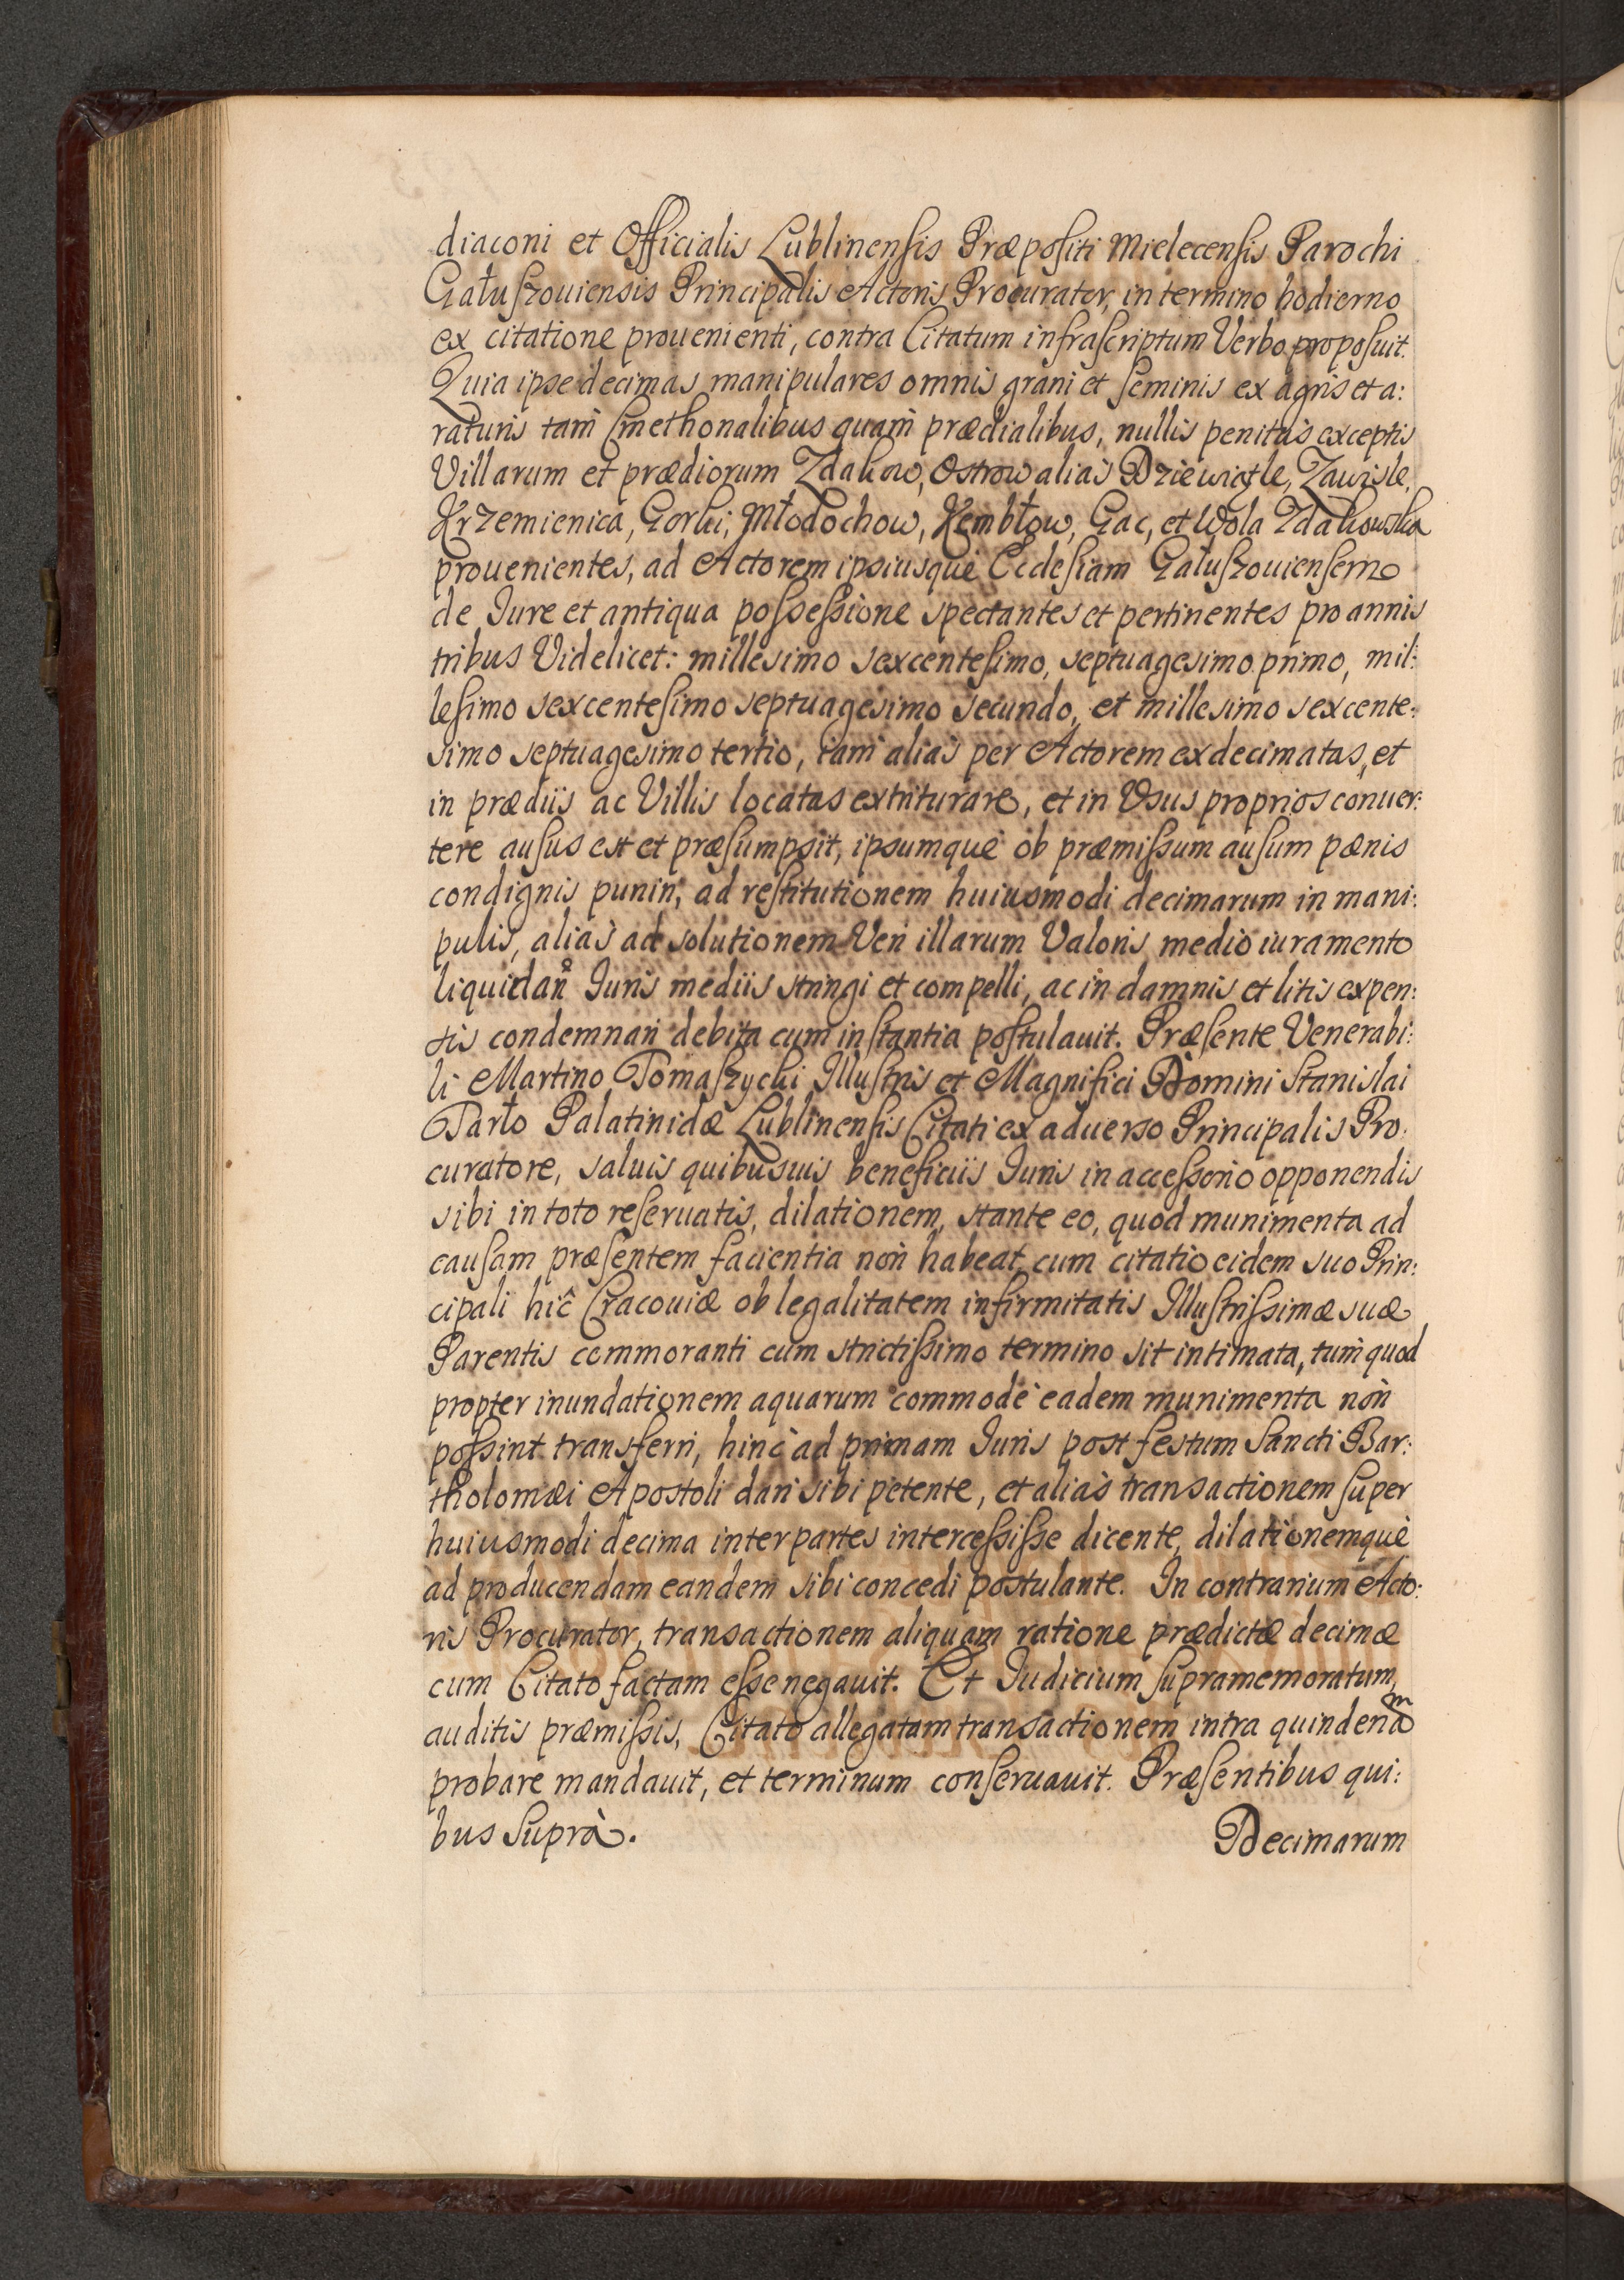 diaconi et Officialis Lublinensis Præpositi Mielecensis Parochi
Gałuszouiensis Principalis Actoris Procurator, in termino hodierno
ex citatione prouenienti, contra Citatum infrascriptum Verbo proposuit.
Quia ipse decimas manipulares omnis grani et seminis ex agris et a:
raturis tam Cmethonalibus quam prædialibus, nullis penitus exceptis
Villarum et prædiorum Zdakow, Ostrow aliàs Dziewiątle, Zawisle,
Krzemienica, Gorki, Młodochow, Kembłow, Gac, et Wola Zdakowska
prouenientes, ad Actorem ipsiusquè Ecclesiam Gałuszouiensem
de Iure et antiqua possessione spectantes et pertinentes pro annis
tribus Videlicet: millesimo sexcentesimo, septuagesimo primo, mil:
lesimo sexcentesimo septuagesimo secundo, et millesimo sexcente:
simo septuagesimo tertio, iam aliàs per Actorem exdecimatas, et
in prædiis ac Villis locatas extriturare, et in Vsus proprios conuer:
tere ausus est et præsumpsit, ipsumquè ob præmissum ausum pœnis
condignis puniri, ad restitutionem huiusmodi decimarum in mani:
pulis, aliàs ad solutionem Veri illarum Valoris medio iuramento
liquidan̄ Iuris mediis stringi et compelli, ac in damnis et litis expen:
sis condemnari debita cum instantia postulauit. Præsente Venerabi:
li Martino Tomaszycki Illustris et Magnifici Domini Stanislai
Tarło Palatinidæ Lublinensis Citati ex aduerso Principalis Pro:
curatore, saluis quibusuis beneficiis Iuris in accessorio opponendis
sibi in toto reseruatis, dilationem, stante eo, quod munimenta ad
causam præsentem facientia non habeat, cum citatio eidem suo Prin:
cipali hîc Cracouiæ ob legalitatem infirmitatis Illustrissimæ suæ
Parentis commoranti cum strictissimo termino sit intimata, tum quod
propter inundationem aquarum commodè eadem munimenta non
possint transferri, hinc ad primam Iuris post festum Sancti Bar:
tholomæi Apostoli dari sibi petente, et aliàs transactionem super
huiusmodi decima inter partes intercessisse dicente, dilationemquè
ad producendam eandem sibi concedi postulante. In contrarium Acto:
ris Procurator, transactionem aliquam ratione prædictæ decimæ
cum Citato factam esse negauit. Et Iudicium supramemoratum,
auditis præmissis, Citato allegatam transactionem intra quindenam
probare mandauit, et terminum conseruauit. Præsentibus qui:
bus suprà.
Decimarum